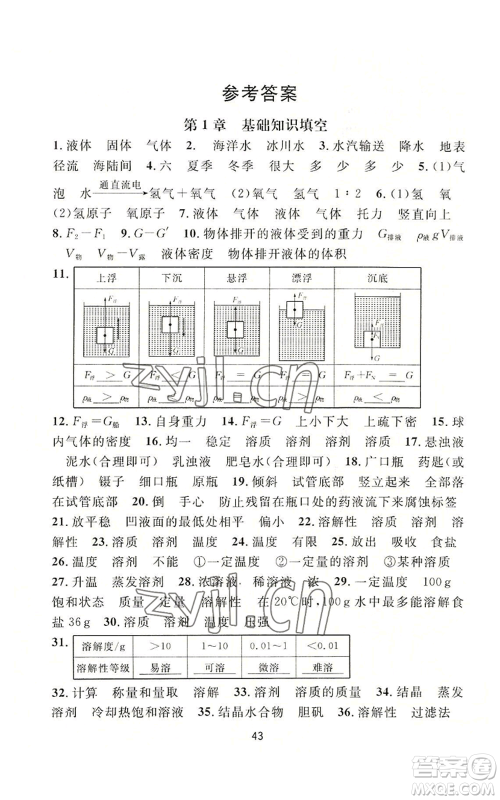 参考答案
第1章 基础知识填空
1.液体 固体 气体 2. 海洋水 冰川水 3.水汽输送 降水 地表
径流 海陆间 4.六 夏季 冬季 很大 多 少 多 少 5.(1)气
泡 水 通直流电 氢气+氧气 (2)氧气 氢气 1∶2 6.(1)氢 氧
(2)氢原子 氧原子 7.液体 气体 液体 气体 托力 竖直向上
8.F₂-F₁ 9.G-G′ 10.物体排开的液体受到的重力 G排液 ρ液gV排液
V物 V物-V露 液体密度 物体排开液体的体积
11. 上浮 下沉 悬浮 漂浮 沉底
F浮 > G F浮 < G F浮 = G F浮 = G F浮+FN = G
12.F浮=G船 13.自身重力 14. = G 上小下大 上疏下密 15.球
内气体的密度 16.均一 稳定 溶质 溶剂 溶剂 溶质 17.悬浊液
泥水(合理即可) 乳浊液 肥皂水(合理即可) 18.广口瓶 药匙(或
纸槽) 镊子 细口瓶 原瓶 19.倾斜 试管底部 竖立起来 全部落
在试管底部 20.倒 手心 防止残留在瓶口处的药液流下来腐蚀标签
21.放平稳 凹液面的最低处相平 偏小 22.溶解性 溶质 溶剂
23.溶质 溶剂 温度 24.温度 有限 25.放出 吸收 食盐
26.温度 溶剂 不能 ①一定温度 ②一定量溶剂 ③某种溶质
27.升温 蒸发溶剂 28.浓溶液 稀溶液 浓 29.一定温度 100g
饱和状态 质量 定量 溶解性 在20℃时,100g水中最多能溶解食
盐36g 30.溶质 溶剂 温度 压强
31. 溶解度/g >10 1~10 0.01~1 <0.01
溶解性等级 易溶 可溶 微溶 难溶
32.计算 称量和量取 溶解 33.溶质的质量 34.结晶 蒸发
溶剂 冷却热饱和溶液 35.结晶水合物 胆矾 36.溶解性 过滤法
43
zyjl.cn
答案圈
MXQE.COM